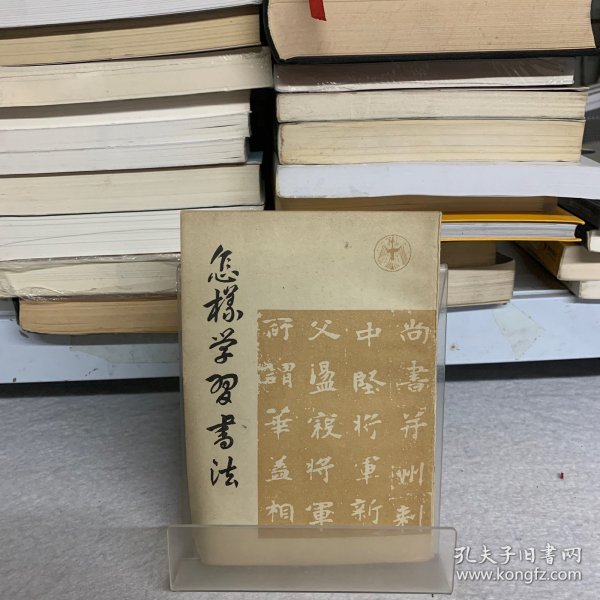 怎樣学習書法
尚書并州刺
中堅將軍新
父盪寇將軍
所謂華盖相
孔夫子旧书网
www.kongfz.com